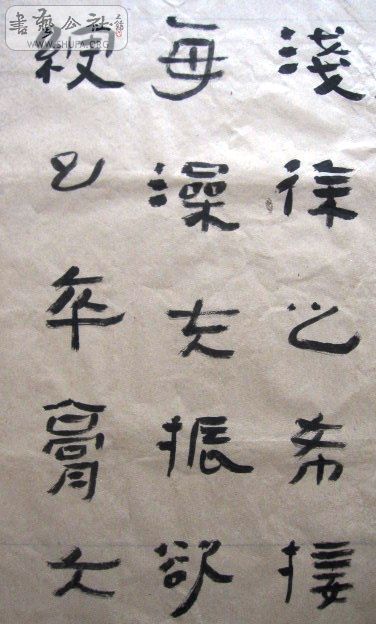 書藝公社
WWW.SHUFA.ORG
淺徐之希接
每澡振欲
卒膏